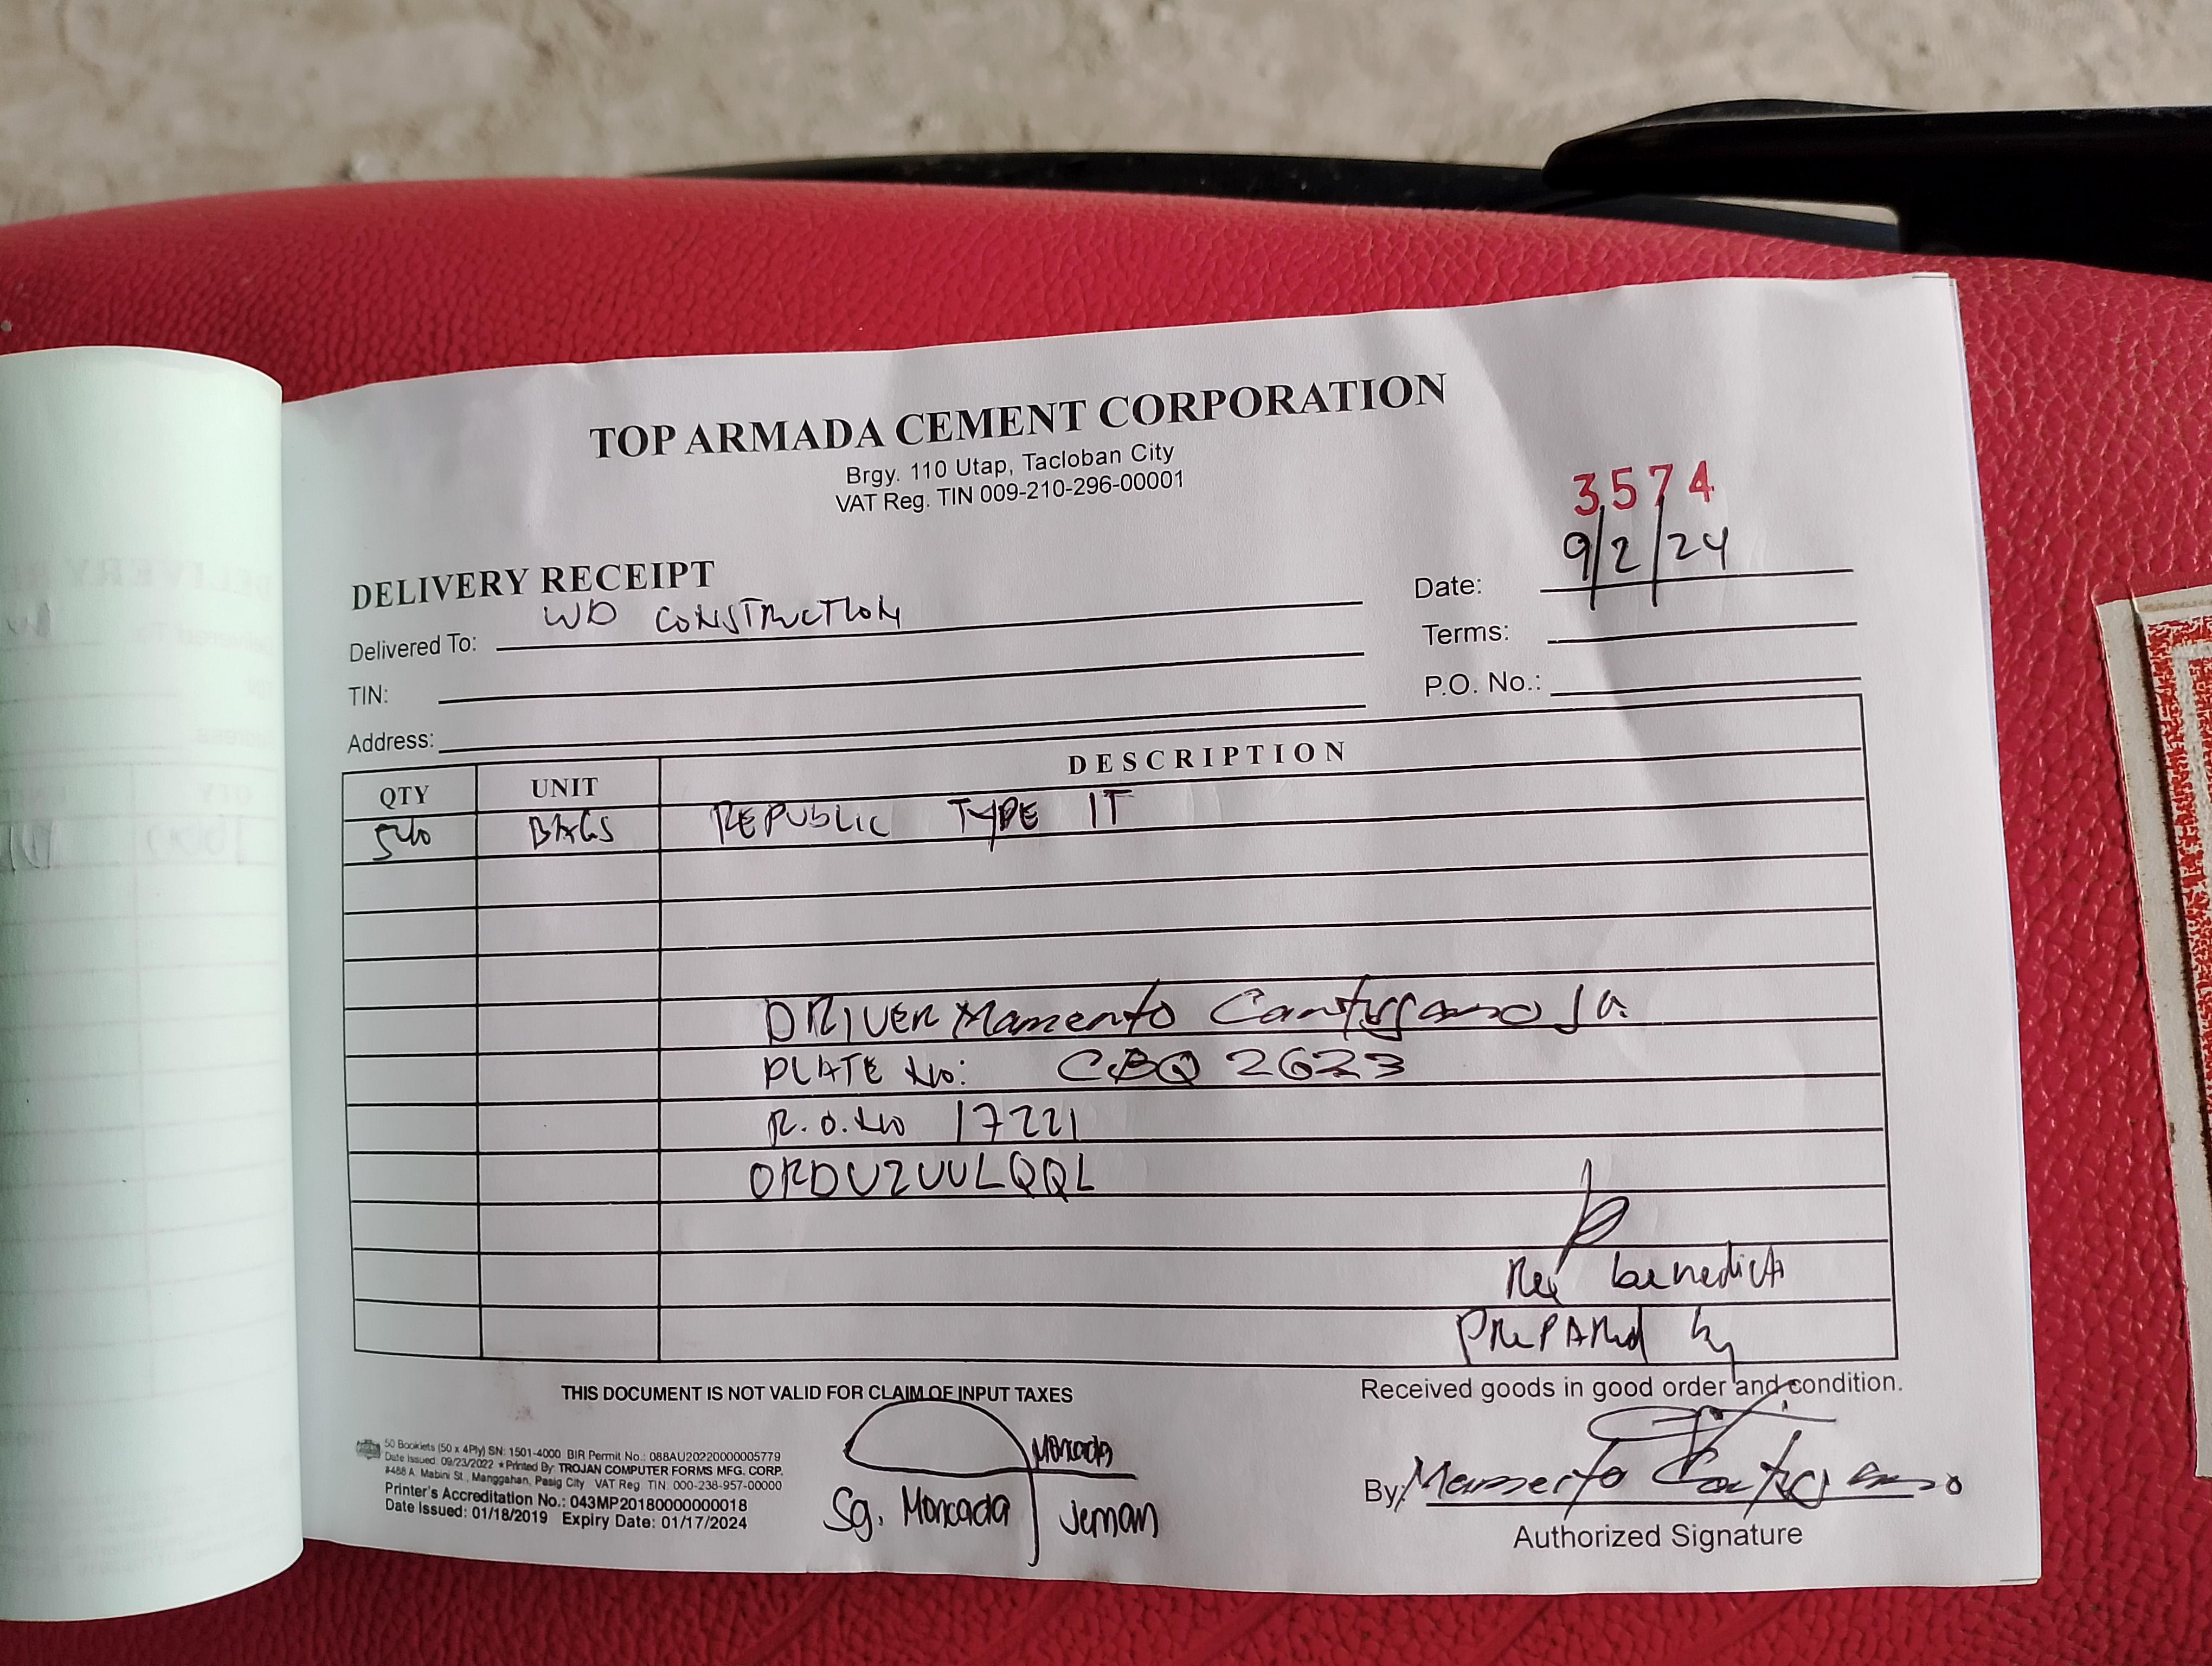 TOP ARMADA CEMENT CORPORATION
Brgy. 110 Utap, Tacloban City
VAT Reg. TIN 009-210-296-00001
3574
DELIVERY RECEIPT
Date: 9/2/24
Delivered To: WD CONSTRUCTION
Terms:
TIN:
P.O. No.:
Address:
QTY UNIT DESCRIPTION
540 BAGS REPUBLIC TYPE 1T
DRIVER Mamerto Jr.
PLATE No: CBQ 2623
R.O. No 17221
ORDUZUULQQL
benedict
PREPARED by
THIS DOCUMENT IS NOT VALID FOR CLAIM OF INPUT TAXES
Received goods in good order and condition.
50 Booklets (50 x 4Ply) SN: 1501-4000 BIR Permit No.: 088AU20220000005779
Date Issued: 09/23/2022 * Printed By: TROJAN COMPUTER FORMS MFG. CORP.
#488 A. Mabini St., Manggahan, Pasig City VAT Reg TIN: 000-238-957-00000
Printer's Accreditation No.: 043MP20180000000018
Date Issued: 01/18/2019 Expiry Date: 01/17/2024
Moncada
Sg. Moncada Jeman
By: Mamerto
Authorized Signature